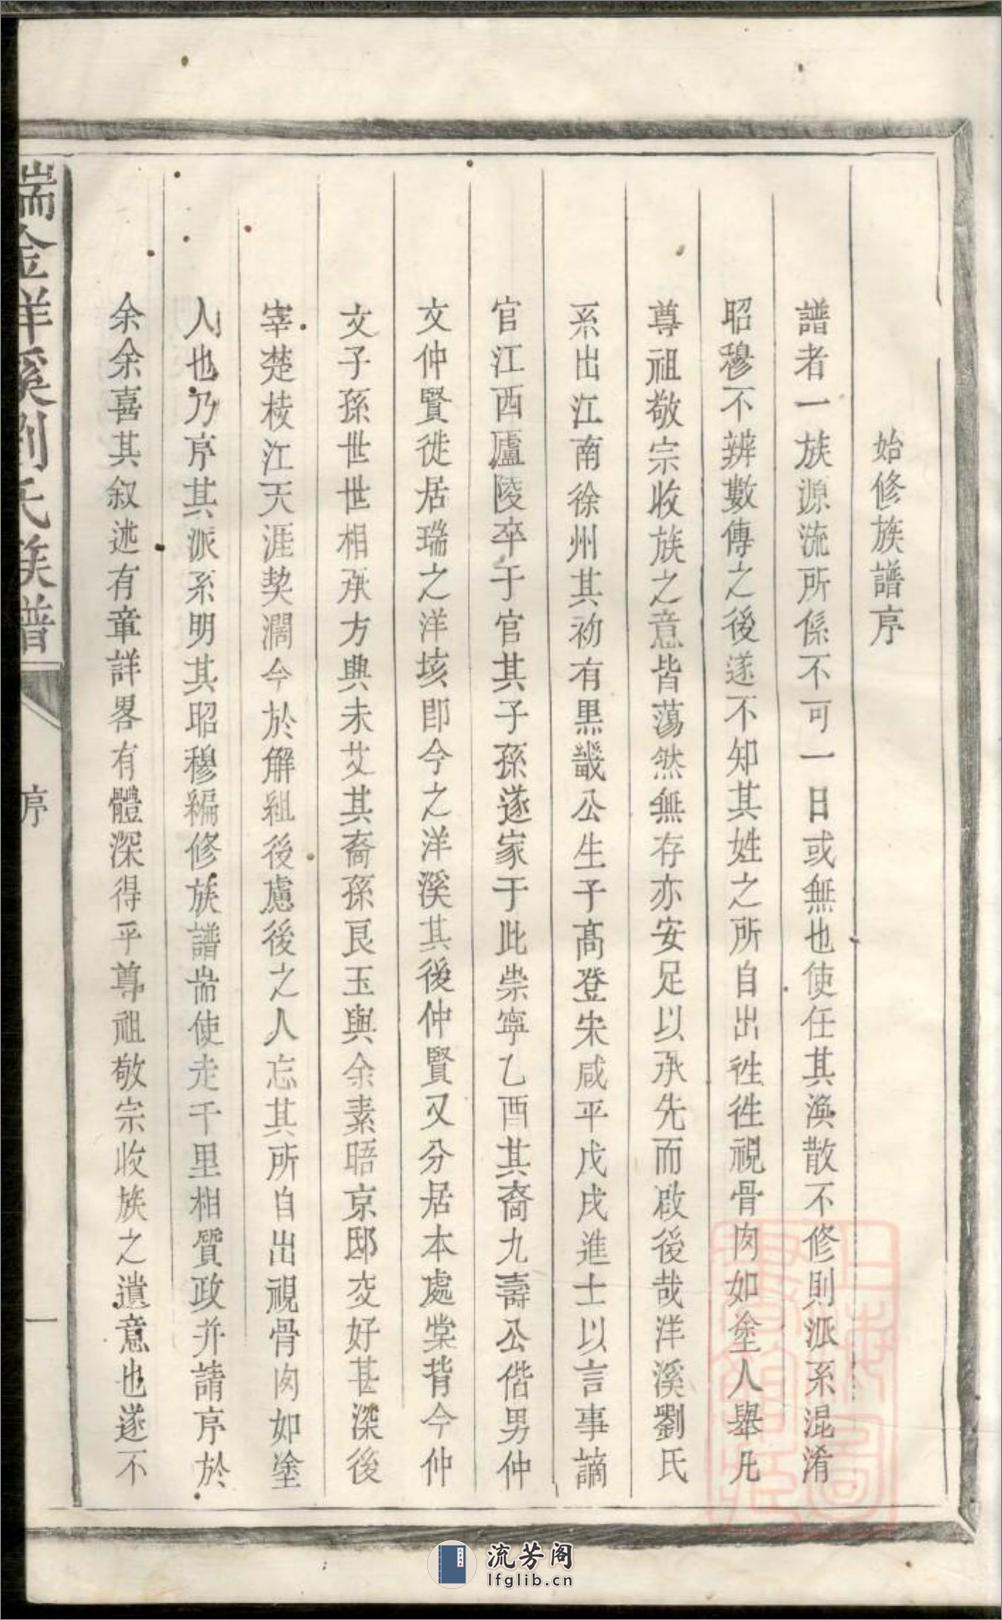 始修族譜序
譜者一族源流所係不可一日或無也使任其渙散不修則派系混淆
昭穆不辨數傳之後遂不知其姓之所自出徃徃視骨肉如塗人舉凡
尊祖敬宗收族之意皆蕩然無存亦安足以承先而啟後哉洋溪劉氏
系出江南徐州其初有黒畿公生子髙登宋咸平戊戌進士以言事謫
官江西廬陵卒于官其子孫遂家于此崇寧乙酉其裔九壽公偕男仲
文仲賢徙居瑞之洋垓卽今之洋溪其後仲賢又分居本處棠背今仲
文子孫世世相承方興未艾其裔孫良玉與余素晤京邸交好甚深後
宰楚枝江天涯契濶今於解組後慮後之人忘其所自出視骨肉如塗
人也乃序其派系明其昭穆編修族譜耑使走千里相質政并請序於
余余喜其叙述有章詳畧有體深得乎尊祖敬宗收族之遺意也遂不
瑞金洋溪劉氏族譜
序
一
流芳阁
lfglib.cn